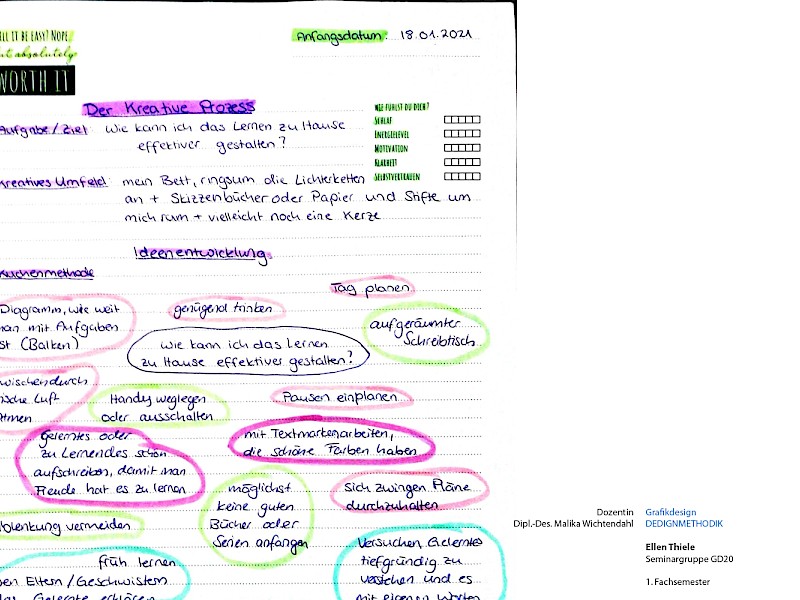 LL IT BE EASY? NOPE.
ut absolutely
WORTH IT
Anfangsdatum: 18.01.2021
Der Kreative Prozess
Aufgabe/Ziel: Wie kann ich das Lernen zu Hause
effektiver gestalten?
WIE FÜHLST DU DICH?
SCHLAF
ENERGIELEVEL
MOTIVATION
KLARHEIT
SELBSTVERTRAUEN
Kreatives Umfeld: mein Bett, ringsum die Lichterketten
an + Skizzenbücher oder Papier und Stifte um
mich rum + vielleicht noch eine Kerze
Ideenentwicklung
kuchenmethode
Tag planen
Diagramm, wie weit
man mit Aufgaben
st (Balken)
genügend trinken
aufgeräumter
Schreibtisch
Wie kann ich das Lernen
zu Hause effektiver gestalten?
wischendurch
ische Luft
atmen
Handy weglegen
oder ausschalten
Pausen einplanen
Gelerntes oder
zu Lernendes schön
aufschreiben, damit man
Freude hat es zu lernen
mit Textmarkern arbeiten,
die schöne Farben haben
möglichst
keine guten
Bücher oder
Serien anfangen
sich zwingen Pläne
durchzuhalten
blenkung vermeiden
früh lernen
en Eltern/Geschwistern
das Gelernte erklären
Versuchen Gelerntes
tiefgründig zu
verstehen und es
mit eigenen Worten
Dozentin
Dipl.-Des. Malika Wichtendahl
Grafikdesign
DEDIGNMETHODIK
Ellen Thiele
Seminargruppe GD20
1. Fachsemester